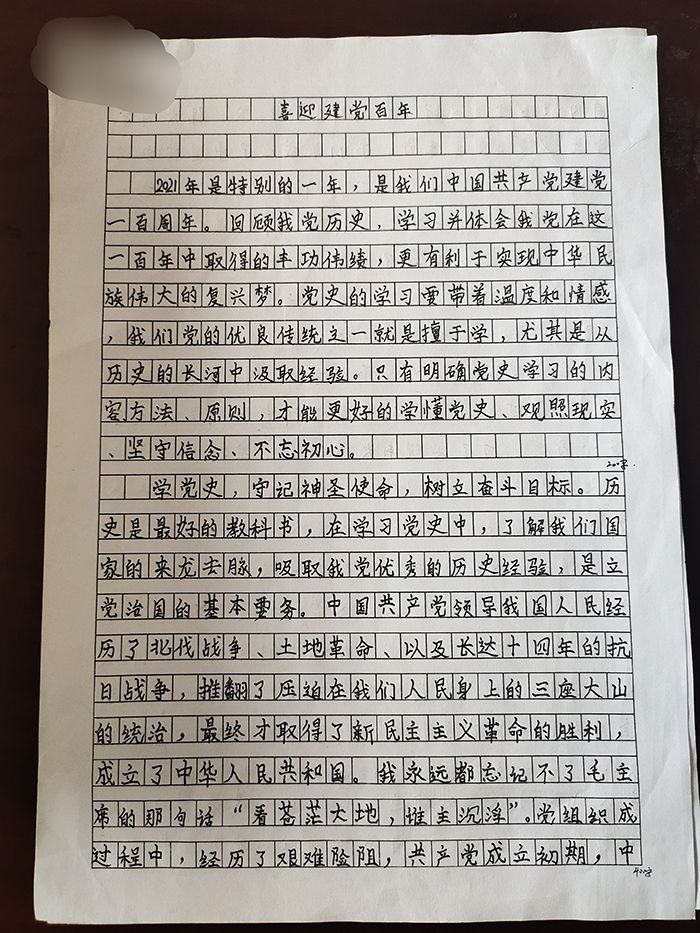 喜迎建党百年
2021年是特别的一年，是我们中国共产党建党
一百周年。回顾我党历史，学习并体会我党在这
一百年中取得的丰功伟绩，更有利于实现中华民
族伟大的复兴梦。党史的学习要带着温度和情感
，我们党的优良传统之一就是擅于学，尤其是从
历史的长河中汲取经验。只有明确党史学习的内
容方法、原则，才能更好的学懂党史、观照现实
、坚守信念、不忘初心。
200字.
学党史，守记神圣使命，树立奋斗目标。历
史是最好的教科书，在学习党史中，了解我们国
家的来龙去脉，吸取我党优秀的历史经验，是立
党治国的基本要务。中国共产党领导我国人民经
历了北伐战争、土地革命、以及长达十四年的抗
日战争，推翻了压迫在我们人民身上的三座大山
的统治，最终才取得了新民主主义革命的胜利，
成立了中华人民共和国。我永远都忘记不了毛主
席的那句话“看苍茫大地，谁主沉浮”。党组织成
过程中，经历了艰难险阻，共产党成立初期，中
400字